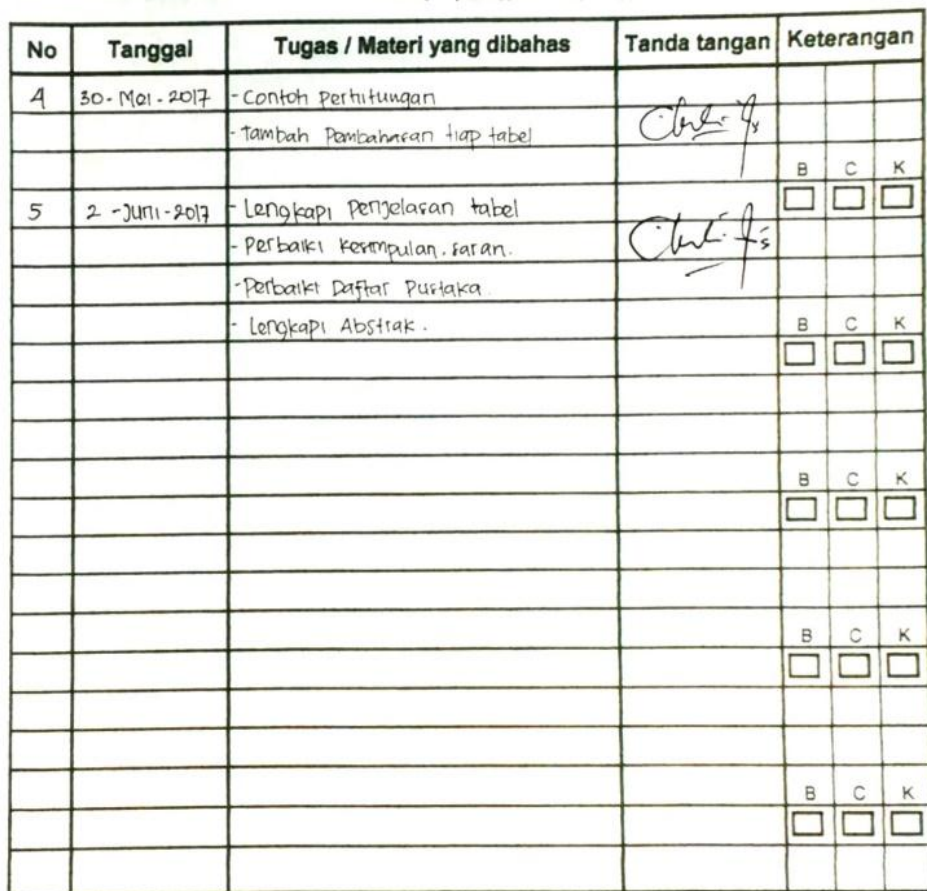 No Tanggal Tugas / Materi yang dibahas Tanda tangan Keterangan
4 30 - Mei - 2017 - Contoh Perhitungan
- Tambah Pembahasan tiap tabel
B C K
5 2 - Juni - 2017 - Lengkapi Penjelasan tabel
- Perbaiki Kesimpulan. saran.
- Perbaiki Daftar Pustaka.
- Lengkapi Abstrak.
B C K
B C K
B C K
B C K